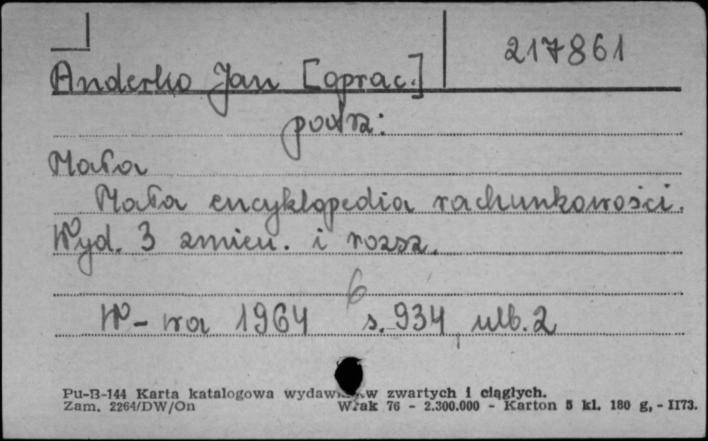 217861
Anderko Jan [oprac.]
patrz:
Mała
Mała encyklopedia rachunkowości.
Wyd. 3 zmien. i rozsz.
6
W-wa 1964 s. 934, nlb. 2
Pu-B-144 Karta katalogowa wydawnictw zwartych i ciągłych.
Zam. 2264/DW/On W.ak 76 - 2.300.000 - Karton 5 kl. 180 g, - II73.